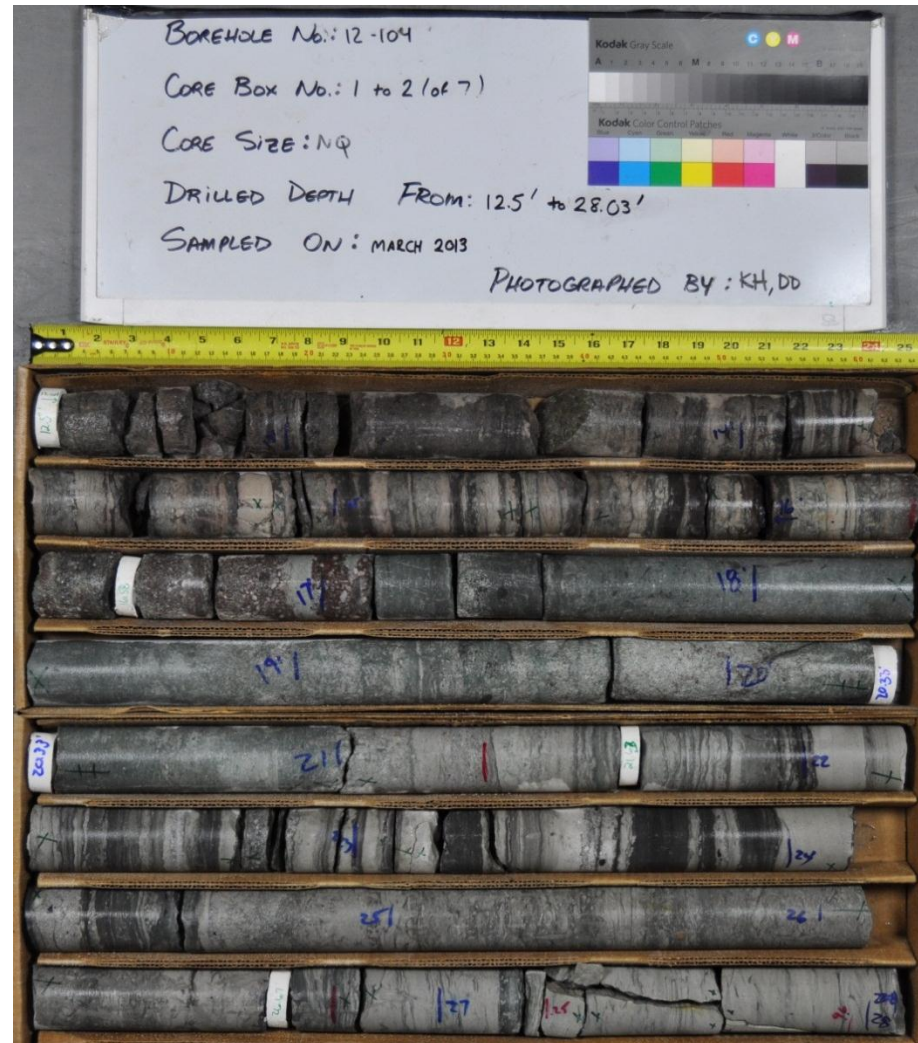 BOREHOLE No.: 12-104
CORE BOX No.: 1 to 2 (of 7)
CORE SIZE: NQ
DRILLED DEPTH FROM: 12.5' to 28.03'
SAMPLED ON: MARCH 2013
PHOTOGRAPHED BY: KH, DD
Kodak Gray Scale
C Y M
A 1 2 3 4 5 6 M 8 9 10 11 12 13 14 15 B 17 18 19
Kodak Color Control Patches
Blue Cyan Green Yellow Red Magenta White 3/Color Black
1 2 3 4 5 6 7 8 9 10 11 12 13 14 15 16 17 18 19 20 21 22 23 24 25
12.5'
14'
15
16
17'
18'
19'
20'
20.33'
20.33'
21
22
23
24
25
26
26.67
27
25
28